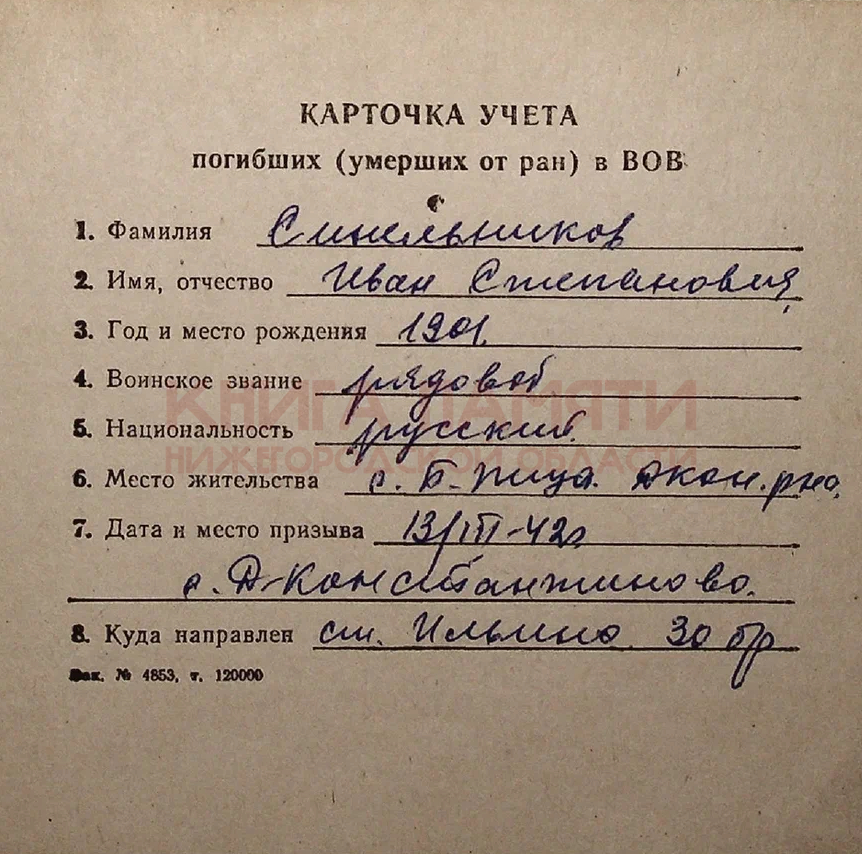 КАРТОЧКА УЧЕТА
погибших (умерших от ран) в ВОВ
1. Фамилия Синельников
2. Имя, отчество Иван Степанович
3. Год и место рождения 1901.
4. Воинское звание рядовой
КНИГА ПАМЯТИ
5. Национальность русский
НИЖЕГОРОДСКОЙ ОБЛАСТИ
6. Место жительства с. Б-Пица. Дкон. р-на.
7. Дата и место призыва 13/III-42г
с. Д-Константиново.
8. Куда направлен ст. Ильино. 30 бр
Зак. № 4853, т. 120000